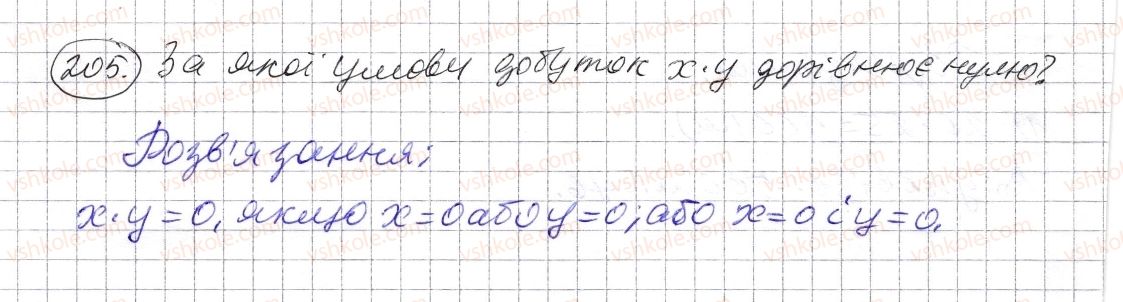 205. За якої умови добуток x·y дорівнює нулю?
Розв'язання:
x·y=0, якщо x=0 або y=0; або x=0 і y=0.